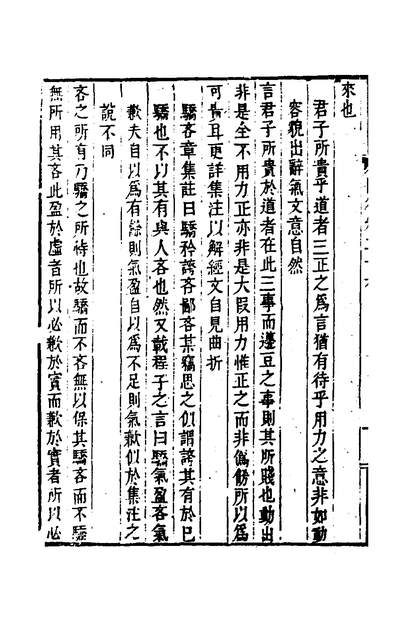 來也
君子所貴乎道者三正之爲言猶有待乎用力之意非如動
容貌出辭氣文意自然
言君子所貴於道者在此三事而籩豆之事則其所賤也動出
非是全不用力正亦非是大叚用力惟正之而非僞飾所以爲
可長耳更詳集注以解經文自見曲折
驕吝章集註曰驕矜誇吝鄙吝某竊思之似謂誇其有於已
驕也不以其有與人吝也然又載程子之言曰驕氣盈吝氣
歉夫自以爲有餘則氣盈自以爲不足則氣歉似於集注之
說不同
吝之所有乃驕之所恃也故驕而不吝無以保其驕吝而不驕
無所用其吝此盈於虛者所以必歉於實而歉於實者所以必